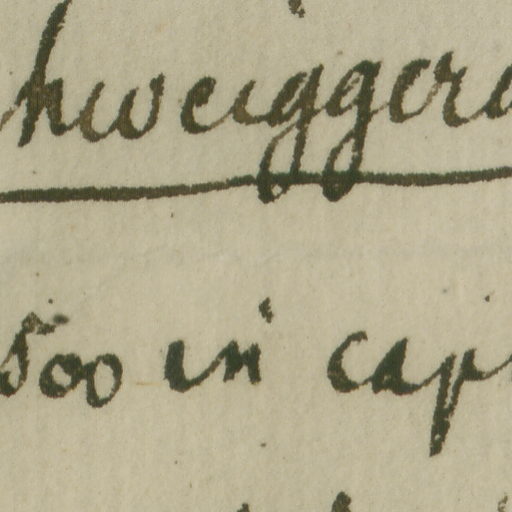 hweiggera
500 in capi